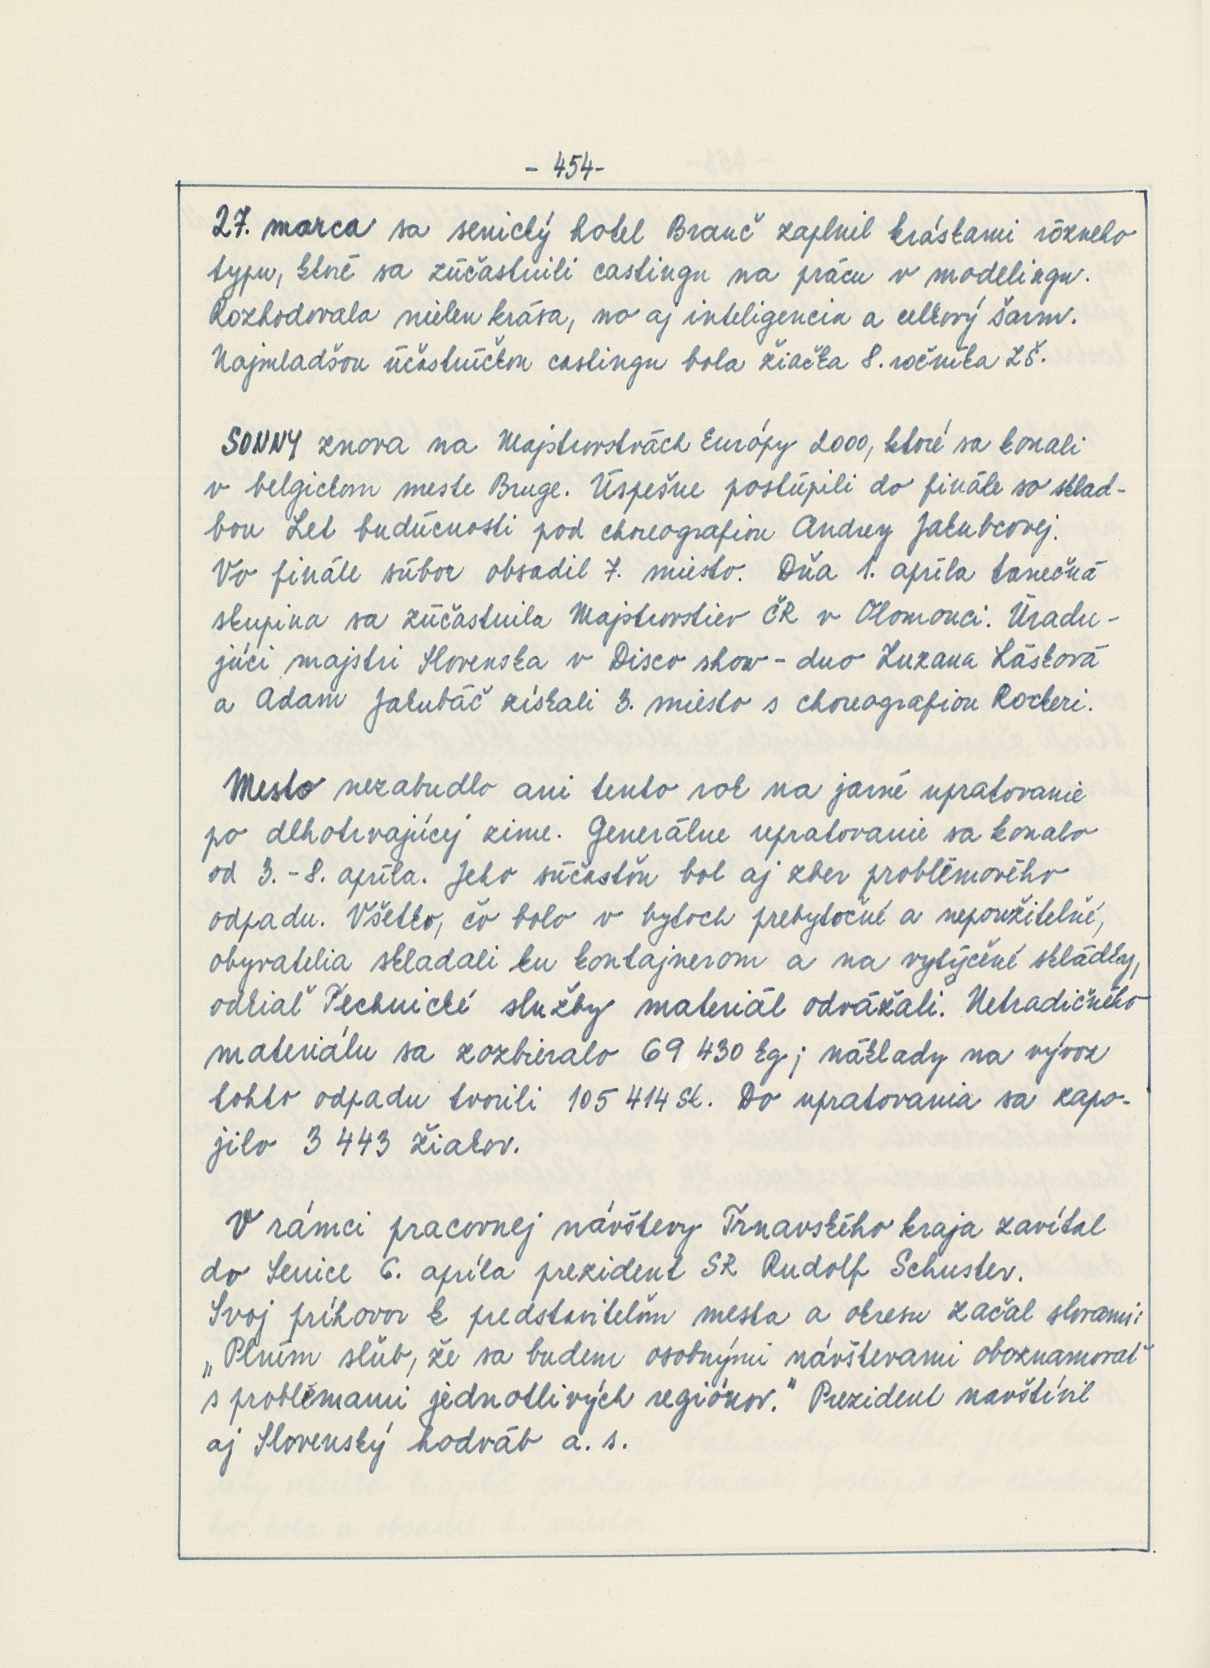 - 454-
27. marca sa senický hotel Branč zaplnil kráskami rôzneho
typu, ktoré sa zúčastnili castingu na prácu v modelingu.
Rozhodovala nielen krása, no aj inteligencia a celkový šarm.
Najmladšou účastníčkou castingu bola žiačka 8. ročníka ZŠ.
SONNY znova na Majstrovstvách Európy 2000, ktoré sa konali
v belgickom meste Bruge. Úspešne postúpili do finále so sklad-
bou Let budúcnosti pod choreografiou Andrey Jakubcovej.
Vo finále súbor obsadil 7. miesto. Dňa 1. apríla tanečná
skupina sa zúčastnila Majstrovstiev ČR v Olomouci. Úradu-
júci majstri Slovenska v Disco show - duo Zuzana Lásková
a Adam Jakubáč získali 3. miesto s choreografiou Rockeri.
Mesto nezabudlo ani tento rok na jarné upratovanie
po dlhotrvajúcej zime. Generálne upratovanie sa konalo
od 3. - 8. apríla. Jeho súčasťou bol aj zber problémového
odpadu. Všetko, čo bolo v bytoch prebytočné a nepoužiteľné,
obyvatelia skladali ku kontajnerom a na vytýčené skládky,
odkiaľ Technické služby materiál odvážali. Netradičného
materiálu sa zozbieralo 69 430 kg; náklady na vývoz
tohto odpadu tvorili 105 414 Sk. Do upratovania sa zapo-
jilo 3 443 žiakov.
V rámci pracovnej návštevy Trnavského kraja zavítal
do Senice 6. apríla prezident SR Rudolf Schuster.
Svoj príhovor k predstaviteľom mesta a okresu začal slovami:
„Plním sľub, že sa budem osobnými návštevami oboznamovať
s problémami jednotlivých regiónov." Prezident navštívil
aj Slovenský hodváb a. s.